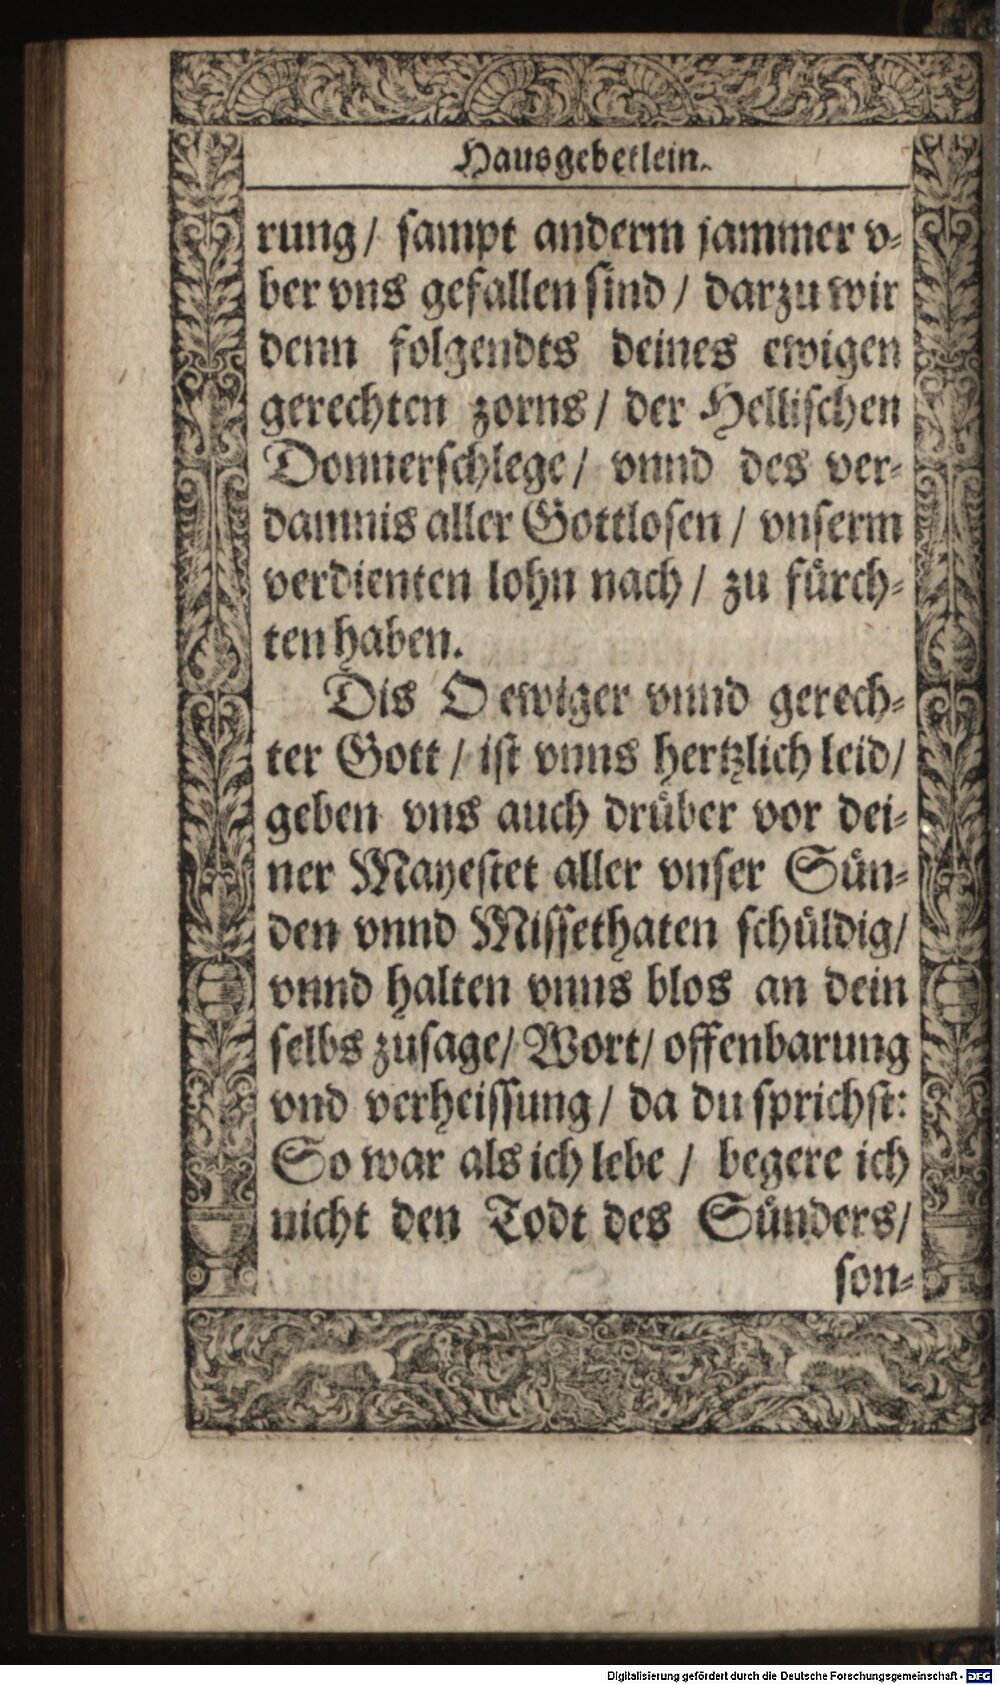 Hausgebetlein.
rung/ sampt anderm jammer v-
ber vns gefallen sind / darzu wir
denn folgendts deines ewigen
gerechten zorns / der Hellischen
Donnerschlege / vnnd des ver-
damnis aller Gottlosen / vnserm
verdienten lohn nach / zu fürch-
ten haben.
Dis O ewiger vnnd gerech-
ter Gott / ist vnns hertzlich leid/
geben vns auch drüber vor dei-
ner Mayestet aller vnser Sün-
den vnnd Missethaten schüldig/
vnnd halten vnns blos an dein
selbs zusage/ Wort/ offenbarung
vnd verheissung / da du sprichst:
So war als ich lebe / begere ich
nicht den Todt des Sünders/
son-
Digitalisierung gefördert durch die Deutsche Forschungsgemeinschaft - DFG